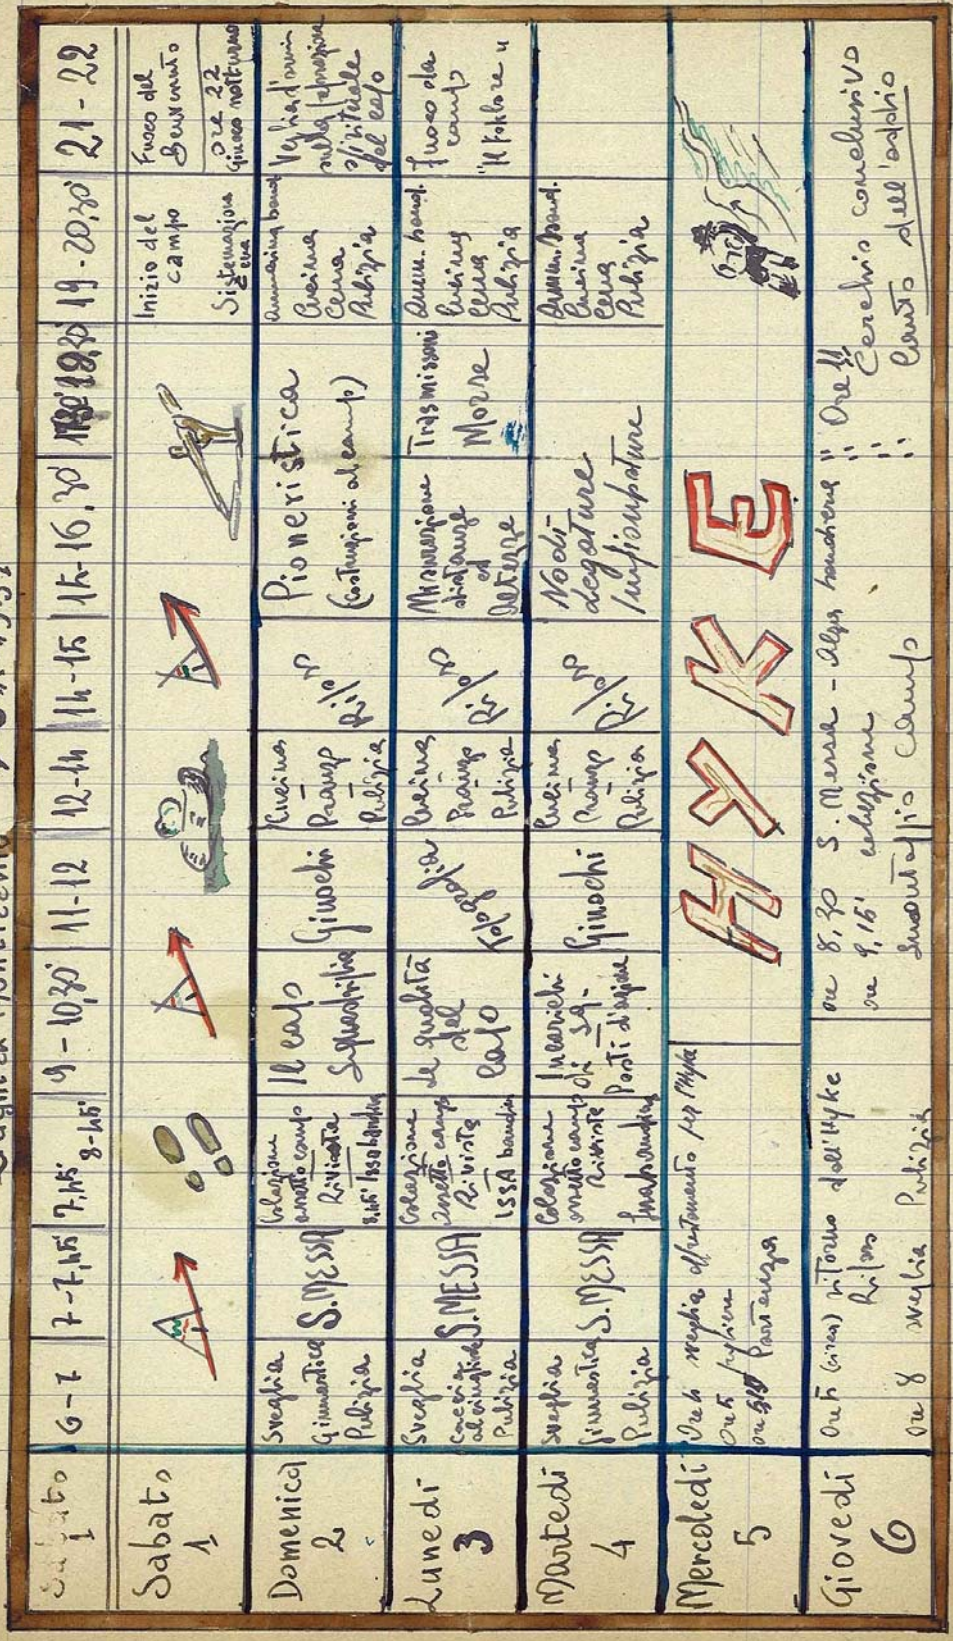 Sabato
1
6-7
7-7,45
7,45
8-45'
9-10,30'
11-12
12-14
14-15
15-16,30'
19-20,30'
21-22
Sabato
1
Inizio del
campo
Sistemazione
Cena
Fuoco del
Benvenuto
Ore 22
Giuoco notturno
Domenica
2
Sveglia
Ginnastica
Pulizia
S.MESSA
Colazione
assetto campo
Rivista
8,45' Issa bandiera
Il capo
Squadriglia
Giuochi
Cucina
Pranzo
Pulizia
Riposo
Pioneristica
(costruzioni al campo)
Ammaina band
Cucina
Cena
Pulizia
Veglia d'armi
sulla formazione
spirituale
del capo
Lunedì
3
Sveglia
Caccia
al coniglio
Pulizia
S.MESSA
Colazione
assetto campo
Rivista
ISSA bandiera
Le qualità
del
Capo
Topografia
Cucina
Pranzo
Pulizia
Riposo
Misurazione
distanze
ed
Altezze
Trasmissioni
Morse
Amm. band.
Cucina
Cena
Pulizia
Fuoco da
campo
"Il Folklore"
Martedì
4
Sveglia
Ginnastica
Pulizia
S.MESSA
Colazione
assetto campo
Rivista
Incarichi
di sq.-
Posti d'azione
Giuochi
Cucina
Pranzo
Pulizia
Riposo
Nodi
Legature
Amm. band.
Cucina
Cena
Pulizia
Mercoledì
5
Ore 4 sveglia affrettamento per l'Hyke
Ore 5
Partenza
HYKE
Giovedì
6
Ore 5 (circa) ritorno dell'Hyke
Riposo
Ore 8 sveglia Pulizia
ore 8,30 S. Messa - Alza bandiera
ore 9,15' colazione
Smontaggio Campo
" Ore 11
Cerchio conclusivo
Canto dell'addio